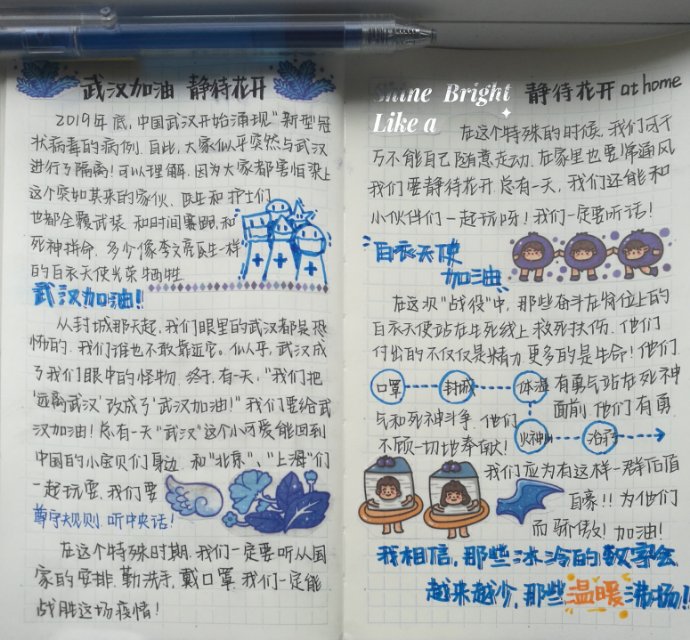 武汉加油 静待花开
2019年底,中国武汉开始涌现"新型冠
状病毒的病例.自此,大家似乎突然与武汉
进行了隔离!可以理解,因为大家都害怕染上
这个突如其来的家伙、医生和护士们
也都全副武装.和时间赛跑,和
死神拼命.多少像李文亮医生一样
的白衣天使光荣牺牲
武汉加油!!
从封城那天起,我们眼里的武汉都是恐
怖的.我们谁也不敢靠近它。似乎,武汉成
了我们眼中的怪物.终于,有一天,"我们把
'远离武汉'改成了'武汉加油!"我们要给武
汉加油!总有一天"武汉"这个小可爱能回到
中国的小宝贝们身边.和"北京"、"上海"们
一起玩耍.我们要
遵守规则 听中央话!
在这个特殊时期.我们一定要听从国
家的安排,勤洗手,戴口罩.我们一定能
战胜这场疫情!
Shine Bright
Like a
静待花开at home
在这个特殊的时候.我们可千
万不能自己随意走动.在家里也要常通风
我们要静待花开.总有一天,我们还能和
小伙伴们一起玩呀!我们一定要听话!
白衣天使
加油
在这次"战役"中,那些奋斗在岗位上的
白衣天使站在生死线上救死扶伤.他们
付出的不仅仅是精力更多的是生命!他们
口罩 封城 体温 有勇气站在死神
面前.他们有勇
气和死神斗争.他们
不顾一切地奉献!
火神山 治疗
我们应为有这样一群后盾
自豪!!为他们
而骄傲!加油!
我相信,那些冰冷的数字会
越来越少,那些温暖沸扬!!